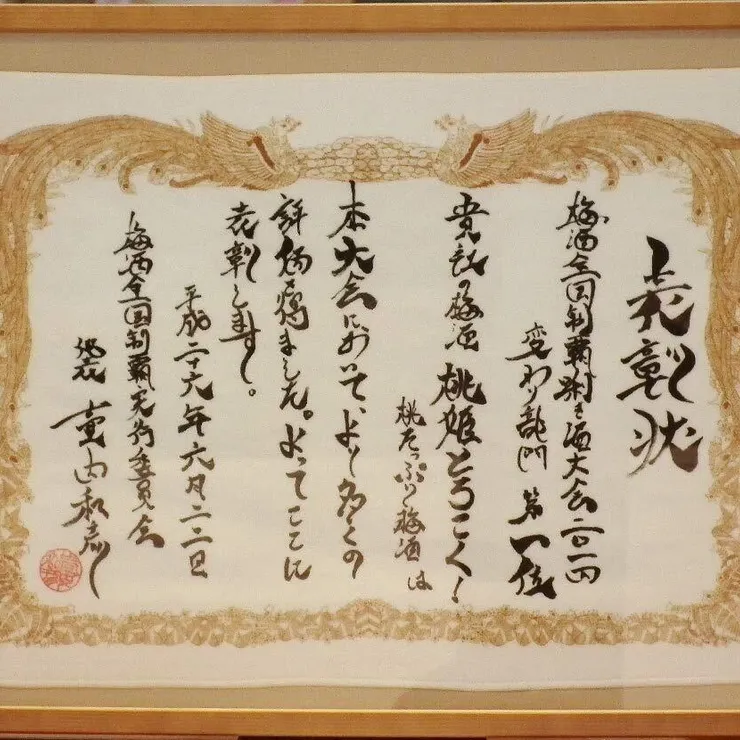 表彰状
梅酒全国制覇唎き酒大会二〇一四
変わり部門 第一位
貴社の梅酒 桃姫とろこく〜
桃たっぷり梅酒 は
本大会において、より多くの
評価を得ました。よってここに
表彰します。
平成二十六年六月二二日
梅酒全国制覇実行委員会
代表